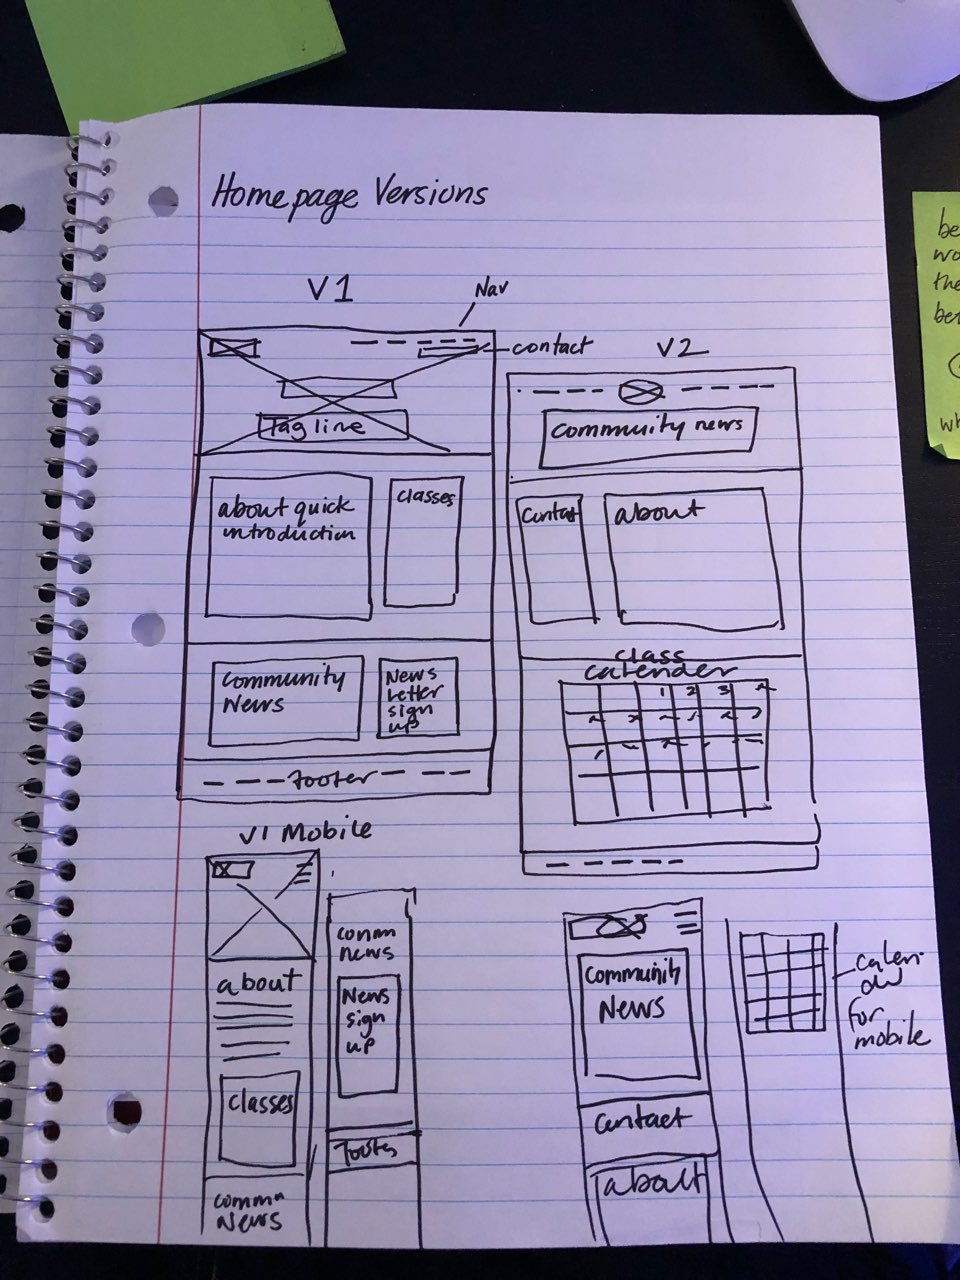 Homepage Versions
V1
Nav
contact
Tag line
about quick
introduction
classes
Community
News
News
Letter
sign
up
footer
V2
community news
contact
about
class
calender
1 2 3
V1 Mobile
about
classes
comm
News
comm
news
News
sign
up
footer
Community
News
contact
about
for
mobile
be
wo
the
be
wh